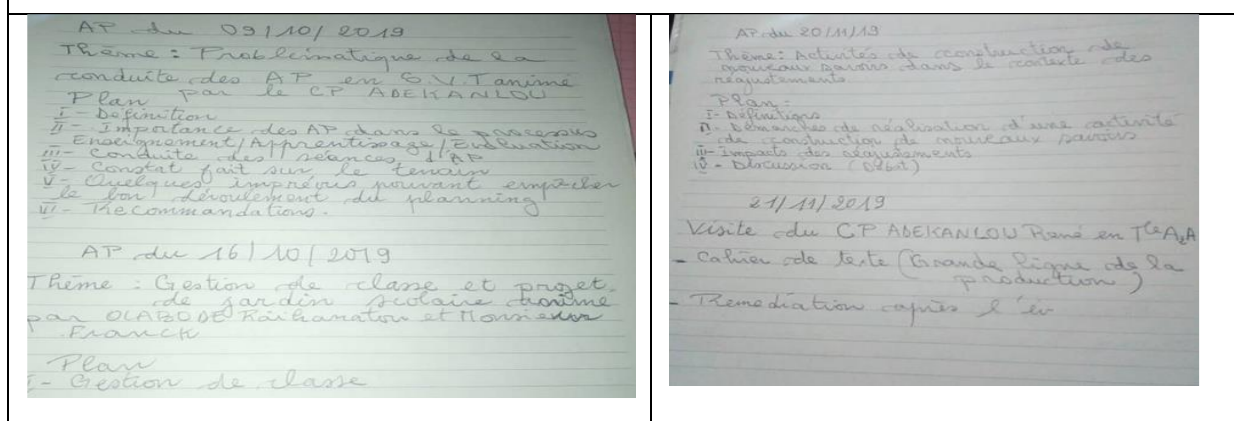 AP du 09/10/2019
Thème : Problématique de la
conduite des AP en S.V.T animé
par le CP ADEKANLOU
Plan
I - Définition
II - Importance des AP dans le processus
Enseignement/Apprentissage/Evaluation
III - Conduite des séances d'AP
IV - Constat fait sur le terrain
V - Quelques imprévus pouvant empêcher
le bon déroulement du planning
VI - Recommandations.
AP du 16/10/2019
Thème : Gestion de classe et projet
de jardin scolaire animé
par OLABODE Raïhanatou et Monsieur
Franck
Plan
I - Gestion de classe
AP du 20/11/19
Thème : Activités de construction de
nouveaux savoirs dans le contexte des
réajustements.
Plan :
I - Définitions
II - Démarches de réalisation d'une activité
de construction de nouveaux savoirs
III - Impacts des réajustements
IV - Discussion (Débat)
21/11/2019
Visite du CP ADEKANLOU René en Tle A2A
- Cahier de texte (Grande ligne de la
production)
- Remediation après l'év